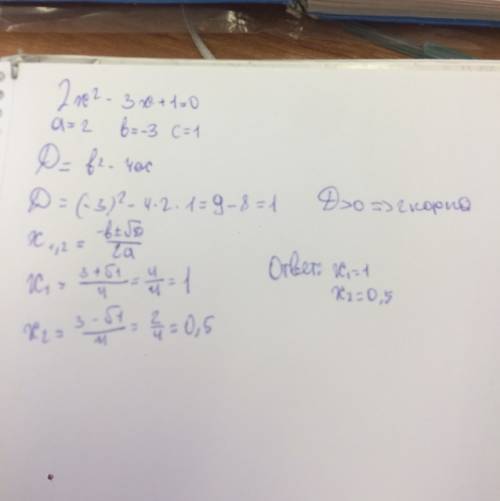 2x² - 3x + 1 = 0
a = 2 b = -3 c = 1
D = b² - 4ac
D = (-3)² - 4 · 2 · 1 = 9 - 8 = 1 D > 0 => 2 корня
x₁,₂ = (-b ± √D) / 2a
x₁ = (3 + √1) / 4 = 4/4 = 1
x₂ = (3 - √1) / 4 = 2/4 = 0,5
Ответ: x₁ = 1
x₂ = 0,5